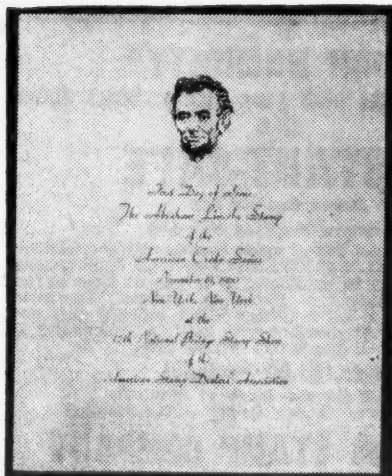 First Day of Issue
The Abraham Lincoln Stamp
of the
American Credo Series
November 19, 1960
New York, New York
at the
12th National Postage Stamp Show
of the
American Stamp Dealers' Association